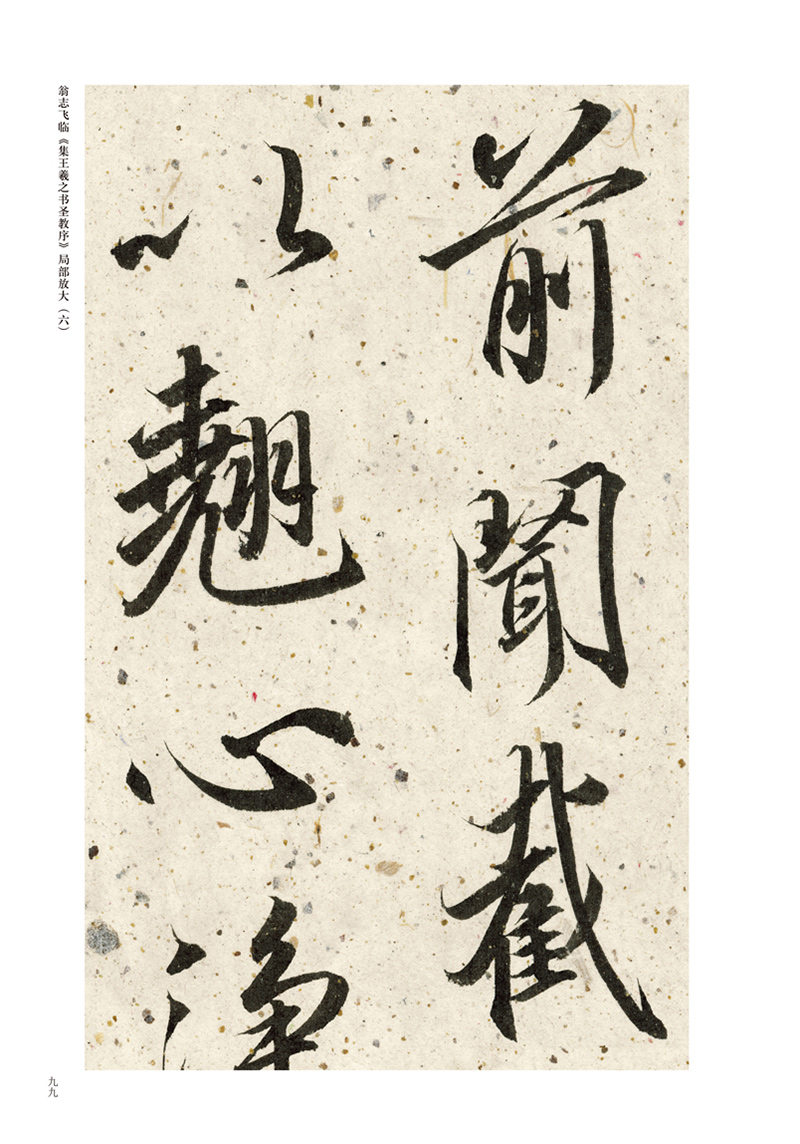 前聞截
以翹心淨
翁志飞临《集王羲之书圣教序》局部放大（六）
九九